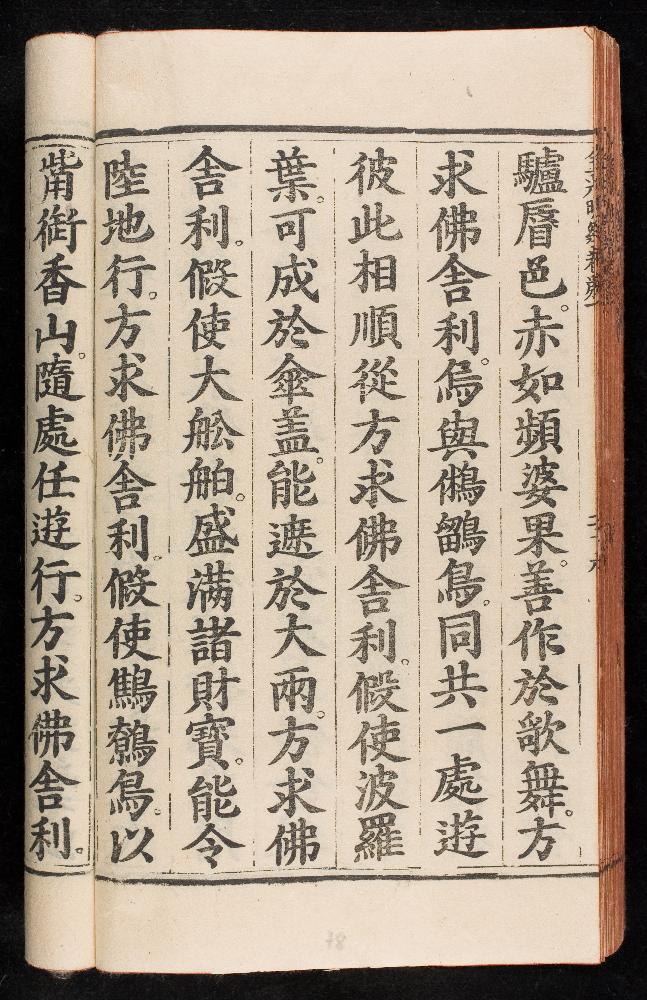 驢脣邑。赤如頻婆果。善作於歌舞。方
求佛舍利。烏與鵂鶹鳥。同共一處遊
彼此相順從方求佛舍利。假使波羅
葉。可成於傘盖。能遮於大雨。方求佛
舍利。假使大舩舶。盛满諸財寶。能令
陸地行。方求佛舍利。假使鷦鷯鳥。以
觜銜香山。隨處任遊行。方求佛舍利。
78